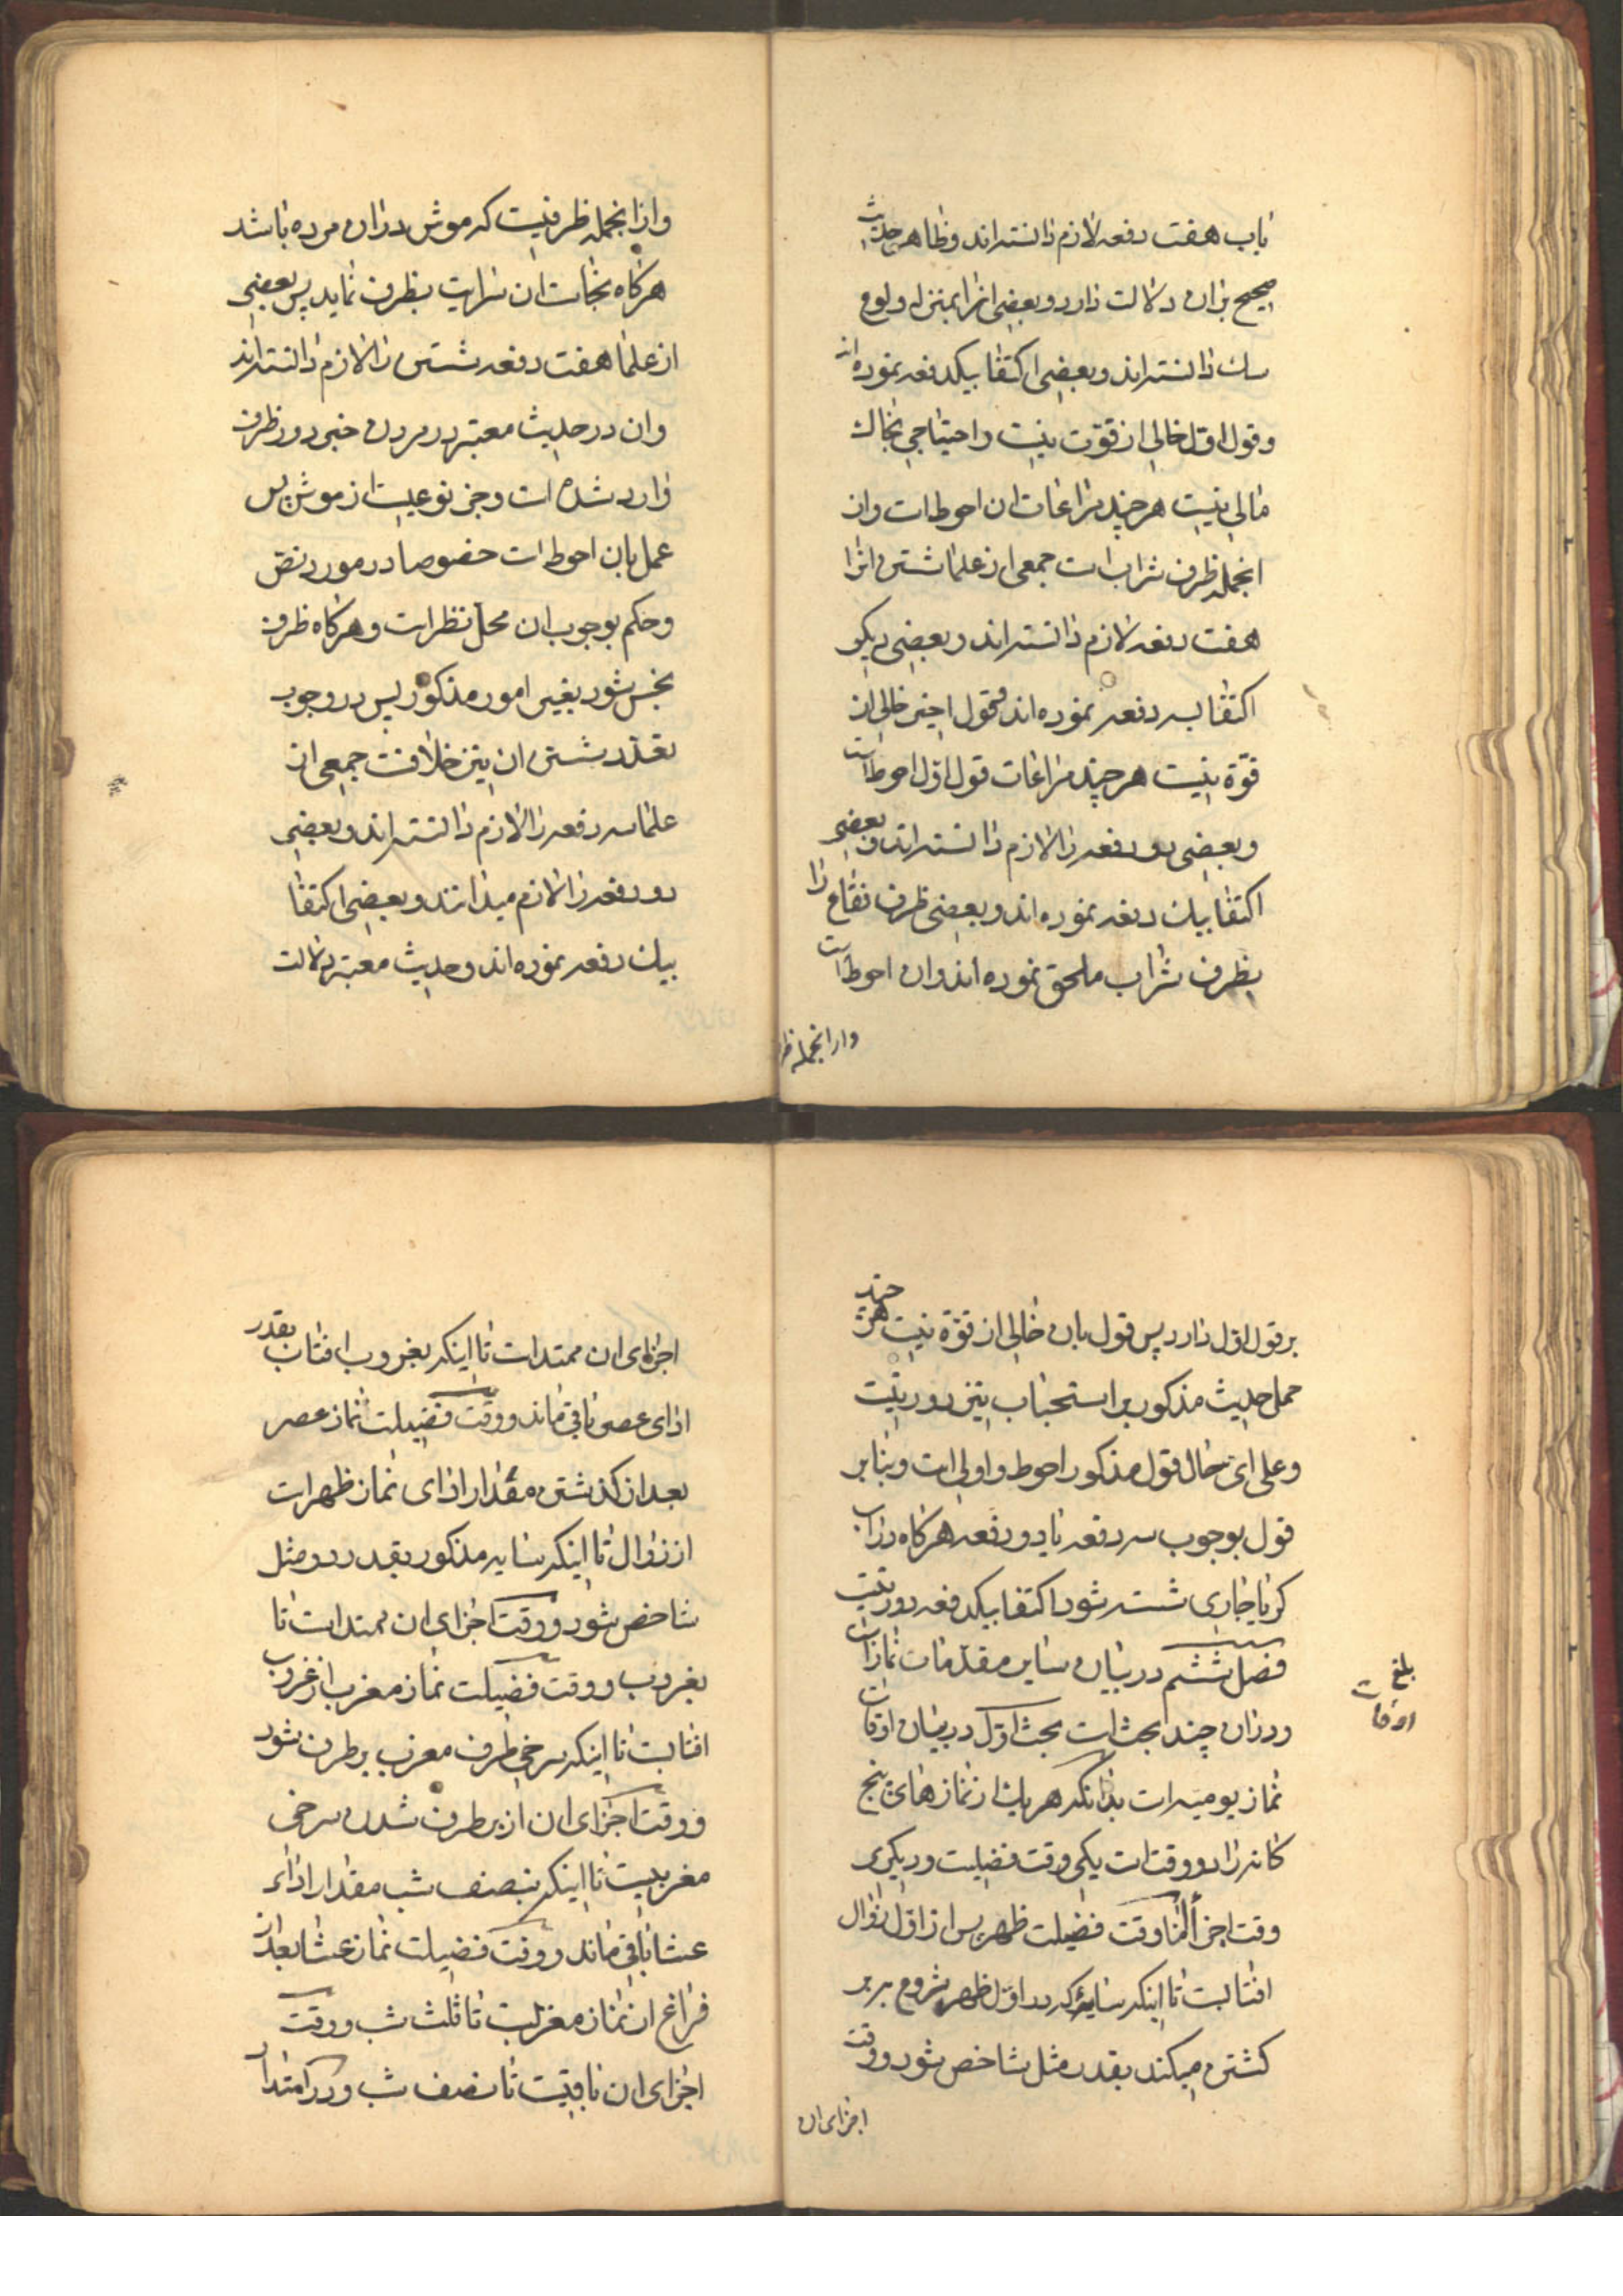 باب هفت دفعه لازم دانسته‌اند و ظاهر حدیث
صحیح بران دلالت دارد و بعضی انرا بمنزله ولوغ
سك دانسته‌اند و بعضی اکتفا بیکدفعه نموده‌اند
و قول اوّل خالی از قوّت نیست و احتیاجی بخاك
مالی نیست هر چند مراعات ان احوطست و از
انجمله ظرف شرابست جمعی از علما شستن انرا
هفت دفعه لازم دانسته‌اند و بعضی دیکر
اکتفا بسه دفعه نموده‌اند و قول اخیر خالی از
قوّة نیست هر چند مراعات قول اوّل احوطست
و بعضی دو دفعه را لازم دانسته‌اند و بعضی
اکتفا بیك دفعه نموده‌اند و بعضی ظرف فقاع را
بظرف شراب ملحق نموده‌اند و ان احوطست
و از انجمله ظر
و از انجمله ظرفیست که موش دران مرده باشد
هرکاه نجاست ان سرایت بظرف نماید پس بعضی
از علما هفت دفعه شستن را لازم دانسته‌اند
و ان در حدیث معتبر در مردن جرز در ظرف
وارد شده است و جرز نوعیست از موش پس
عمل بان احوطست خصوصا در مورد نصّ
و حکم بوجوب ان محلّ نظر است و هرکاه ظرف
نجس شود بغیر امور مذکور پس در وجوب
تعدّد شستن ان نیز خلافست جمعی از
علما سه دفعه را لازم دانسته‌اند و بعضی
دو دفعه را لازم میدانند و بعضی اکتفا
بیك دفعه نموده‌اند و حدیث معتبر دلالت
بر قول اوّل دارد پس قول بان خالی از قوّة نیست هر چند
حمل حدیث مذکور بر استحباب نیز دور نیست
و علی ایّ حال قول مذکور احوط و اولی است و بنابر
قول بوجوب سه دفعه یا دو دفعه هرکاه دراب
کر یا جاری شسته شود اکتفا بیکدفعه دور نیست
فصل ششم در بیان سایر مقدّمات نماز است
و دران چند بحث است بحث اوّل در بیان اوقات
نماز یومیه است بدانکه هر یك از نمازهای پنج
کانه را دو وقت است یکی وقت فضیلت و دیکری
وقت اجزأ امّا وقت فضیلت ظهر پس از اوّل زوال
افتابست تا اینکه سایۀ که در اوّل ظهر شروع بر بر
کشتن میکند بقدر مثل شاخص شود و وقت
اجزای ان
بلغ
اوقات
اجزای ان ممتد است تا اینکه بغروب افتاب بقدر
ادای عصر باقی ماند و وقت فضیلت نماز عصر
بعد از کذشتن مقدار ادای نماز ظهر است
از زوال تا اینکه سایه مذکور بقدر دو مثل
شاخص شود و وقت اجزای ان ممتد است تا
بغروب و وقت فضیلت نماز مغرب از غروب
افتابست تا اینکه سرخی طرف مغرب برطرف شود
و وقت اجزای ان از برطرف شدن سرخی
مغربیست تا اینکه بنصف شب مقدار اداء
عشا باقی ماند و وقت فضیلت نماز عشا بعد از
فراغ از نماز مغربست تا ثلث شب و وقت
اجزای ان باقیست تا نصف شب و در امتداد